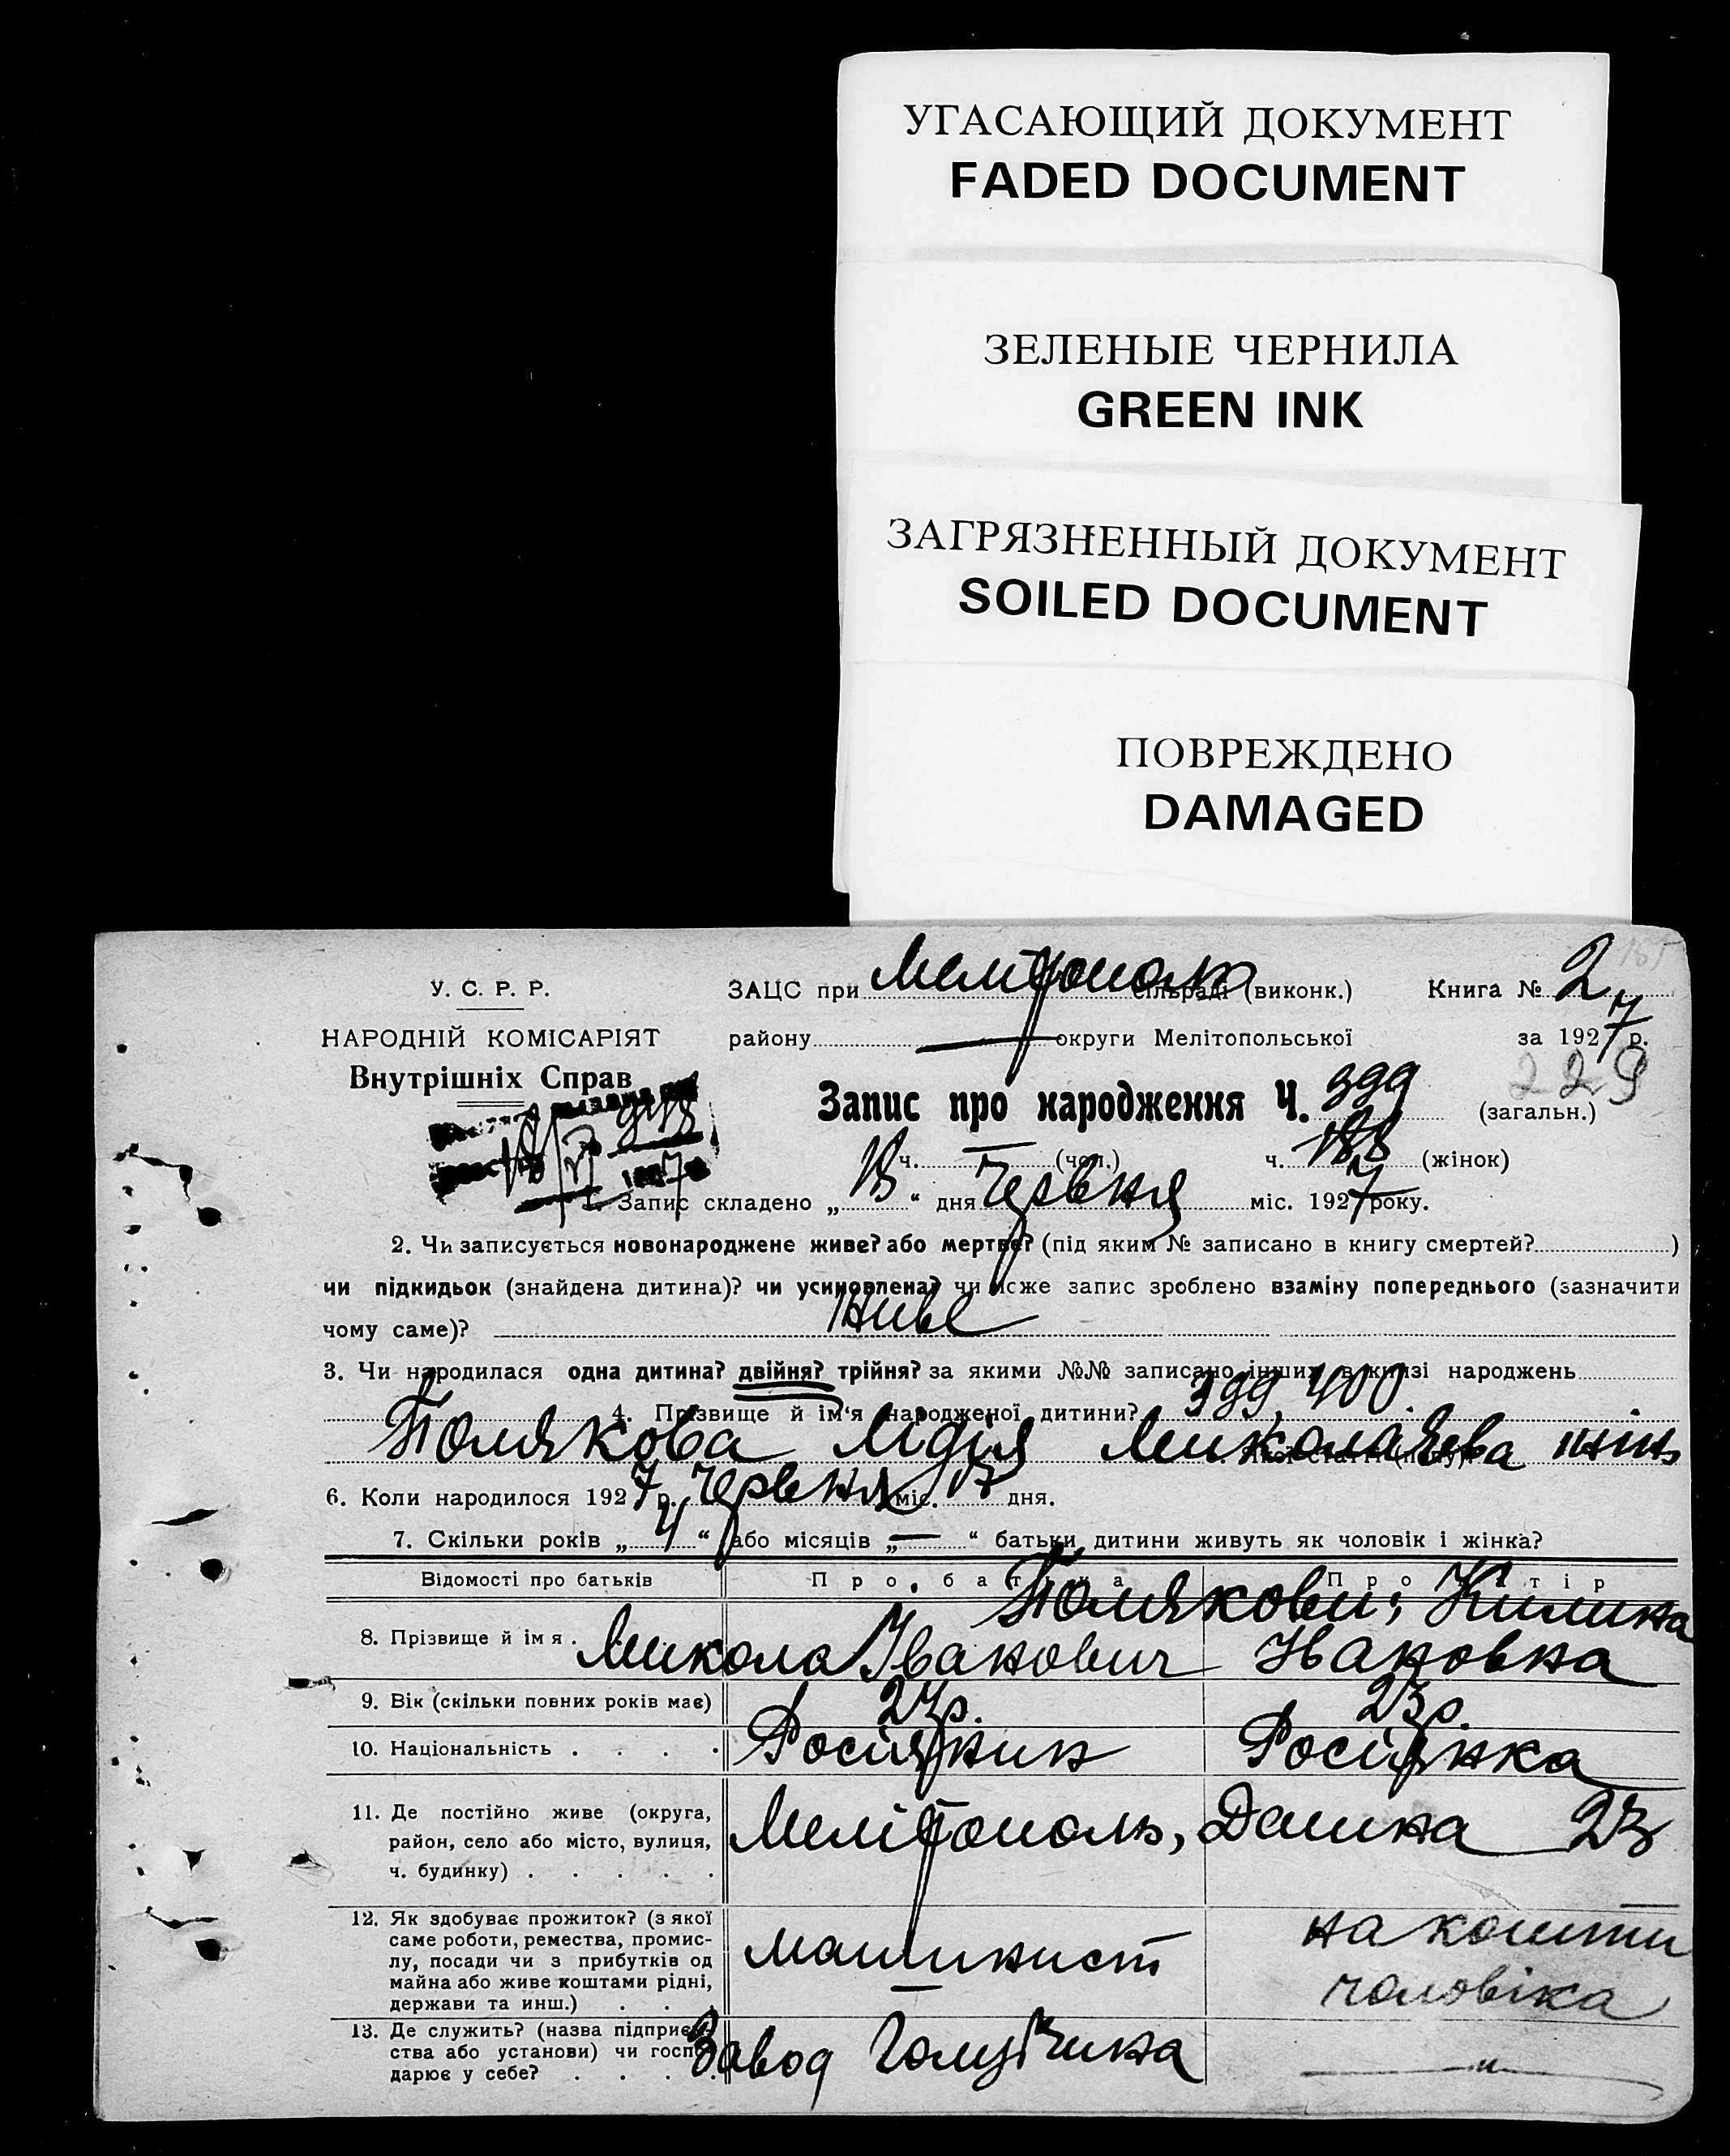 УГАСАЮЩИЙ ДОКУМЕНТ
FADED DOCUMENT
ЗЕЛЕНЫЕ ЧЕРНИЛА
GREEN INK
ЗАГРЯЗНЕННЫЙ ДОКУМЕНТ
SOILED DOCUMENT
ПОВРЕЖДЕНО
DAMAGED
У. С. Р. Р.
ЗАЦС при Мелітополь сільраді (виконк.) Книга № 2
НАРОДНІЙ КОМІСАРІЯТ
району — округи Мелітопольської за 1927 р.
Внутрішніх Справ
229
Запис про народження Ч. 399 (загальн.)
ч. — (чол.) ч. 188 (жінок)
1. Запис складено „ 18 “ дня Червня міс. 1927 року.
2. Чи записується новонароджене живе? або мертве? (під яким № записано в книгу смертей? )
чи підкидьок (знайдена дитина)? чи усиновлена? чи може запис зроблено взаміну попереднього (зазначити
чому саме)? Живе
3. Чи народилася одна дитина? двійня? трійня? за якими №№ записано інших в книзі народжень
399, 400.
4. Прізвище й ім'я народженої дитини?
Полякова Лідія Миколаєва жін.
6. Коли народилося 1927 р. Червня міс. дня.
7. Скільки років „ 4 “ або місяців „ — “ батьки дитини живуть як чоловік і жінка?
Відомості про батьків
Про батька
Про матір
Полякови; Килина
8. Прізвище й імя. Микола Іванович Івановна
9. Вік (скільки повних років має) 23 р.
10. Національність . . . . Росіянин Росіянка
11. Де постійно живе (округа,
район, село або місто, вулиця,
ч. будинку) . . . . .
Мелітополь, 23
12. Як здобуває прожиток? (з якої
саме роботи, ремества, промис-
лу, посади чи з прибутків од
майна або живе коштами рідні,
держави та инш.) . . .
машинист
на кошти
чоловіка
13. Де служить? (назва підприєм-
ства або установи) чи госпо-
дарює у себе? . . . .
Завод
— „ —